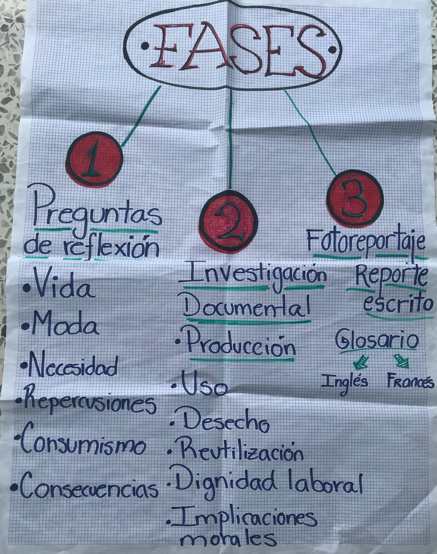 •FASES•
1
Preguntas
de reflexión
•Vida
•Moda
•Necesidad
•Repercusiones
•Consumismo
•Consecuencias
2
Investigación
Documental
•Producción
•Uso
•Desecho
•Reutilización
•Dignidad laboral
•Implicaciones
morales
3
Fotoreportaje
Reporte
escrito
Glosario
Inglés Francés